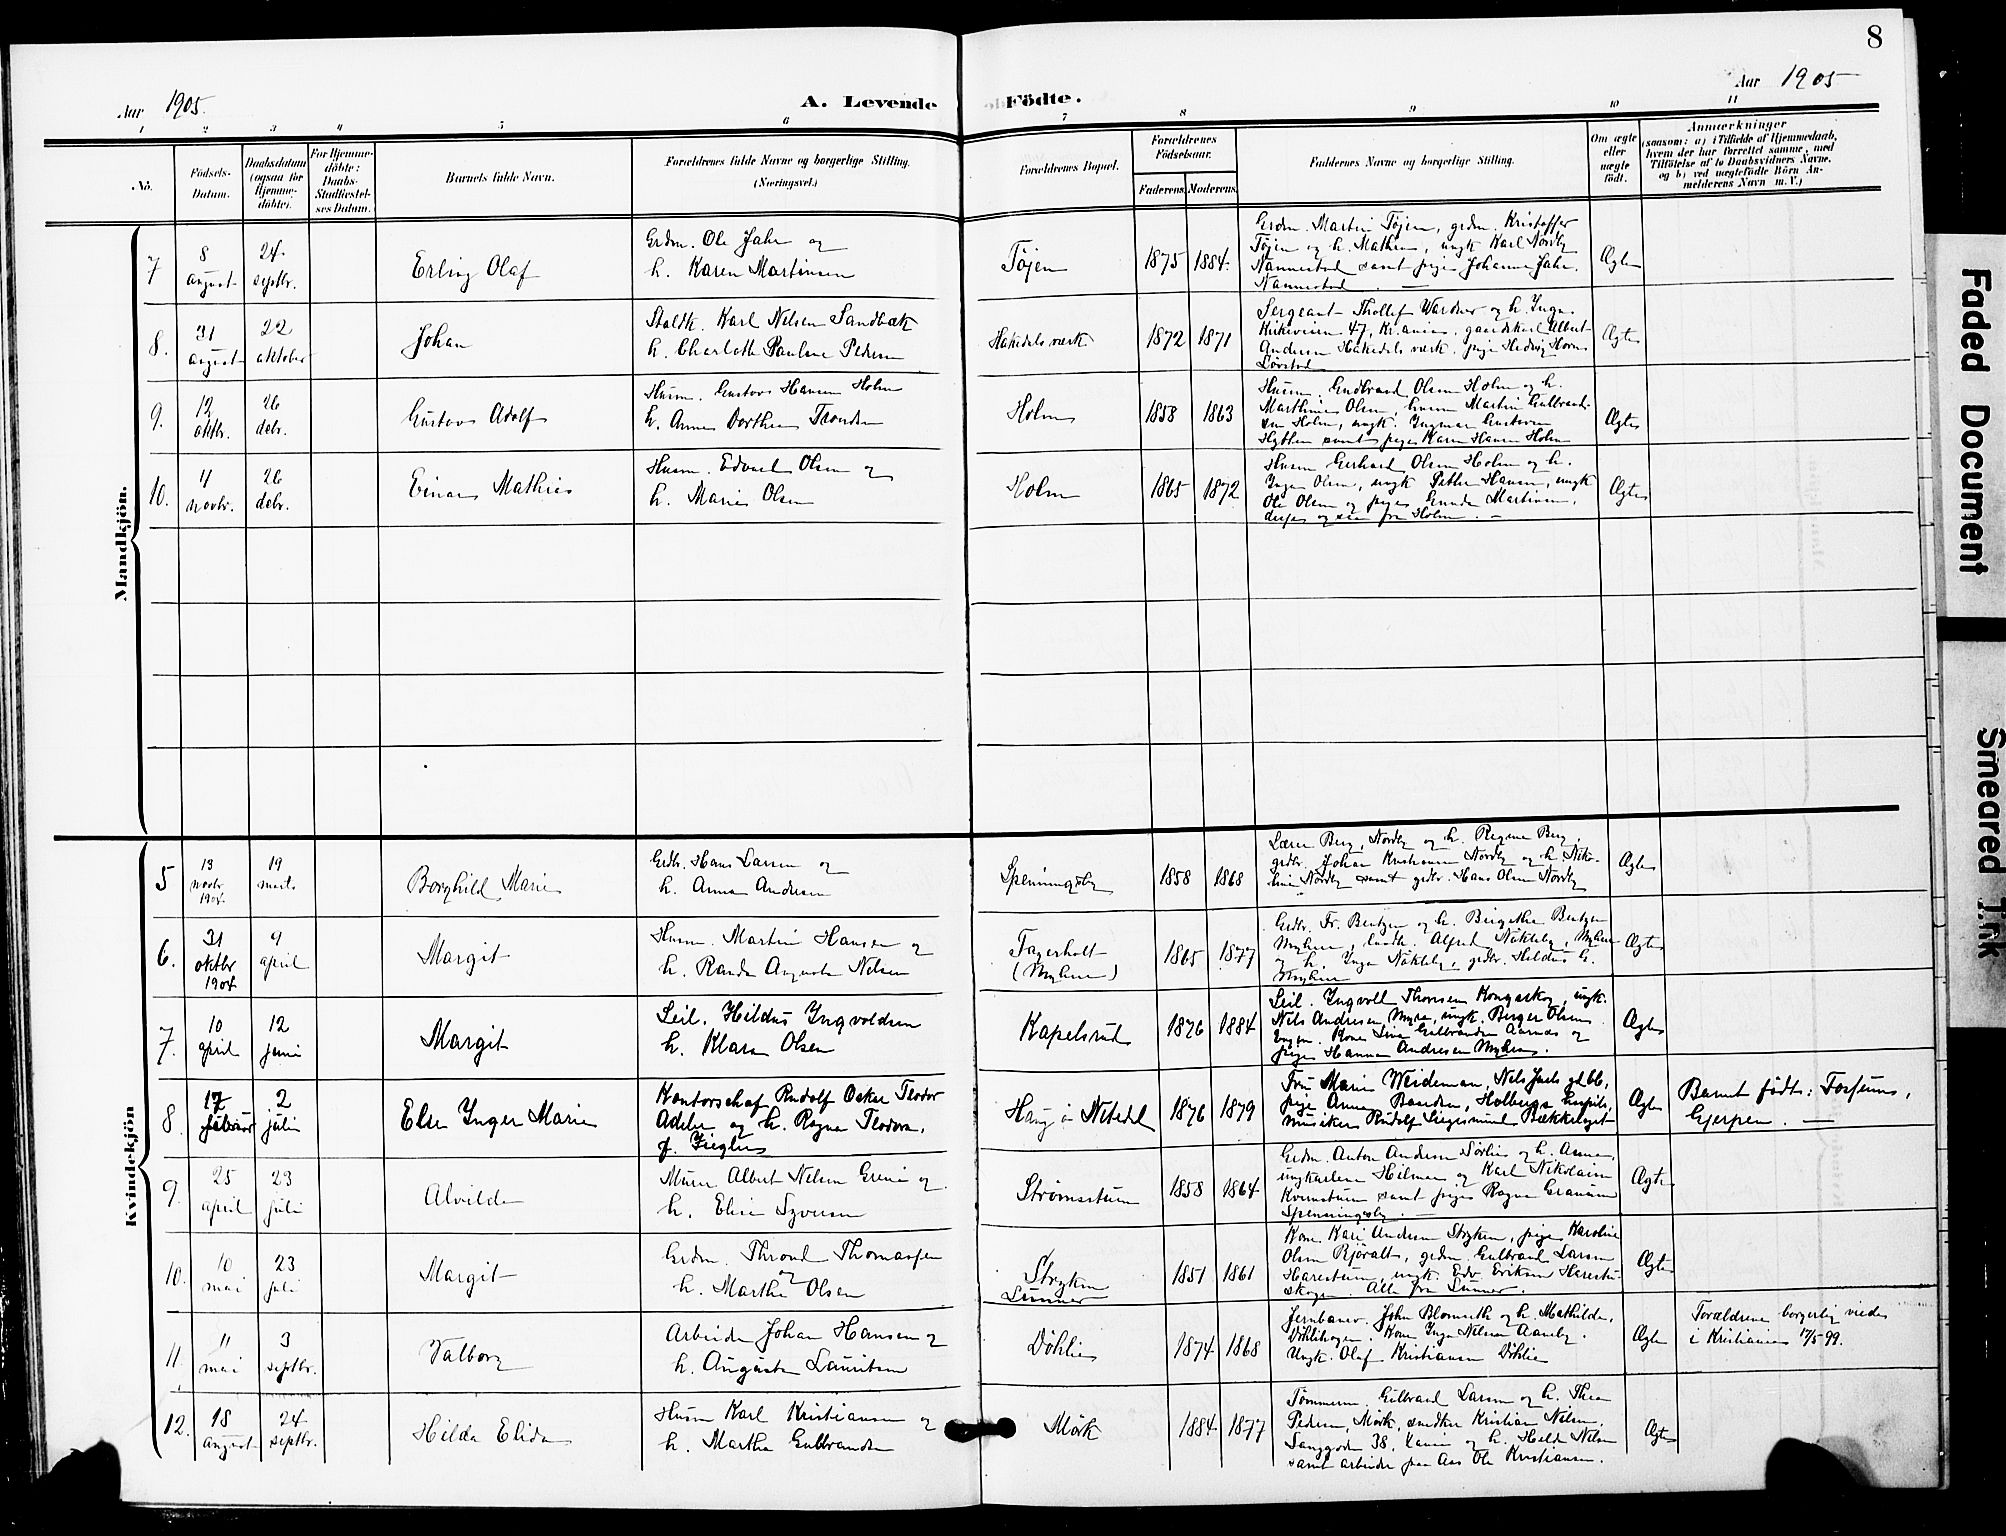 8
Aar 1905.
A. Levende Födte.
Aar 1905
1 2 3 4 5 6 7 8 9 10 11
No.
Födsels-
Datum.
Daabsdatum
(ogsaa for
Hjemme-
döbte).
For Hjemme-
döbte:
Daabs-
Stadfæstel-
ses Datum.
Barnets fulde Navn.
Forældrenes fulde Navne og borgerlige Stilling.
(Næringsvei.)
Forældrenes Bopæl.
Forældrenes
Födselsaar.
Faderens. Moderens.
Faddernes Navne og borgerlige Stilling.
Om ægte
eller
uægte
født.
Anmærkninger
(saasom: a) i Tilfælde af Hjemmedaab,
hvem der har forrettet samme, med
Tilföielse af to Daabsvidners Navne,
og b) ved uægtefödte Börn An-
melderens Navn m. V.)
Mandkjön.
7
8
august
24
septbr.
Erling Olaf
Grdm. Ole Jahr og
h. Karen Martinsen
Töjen
1875 1884.
Grdm. Martin Töjen, grdm. Kristoffer
Töjen og h. Mathea, ungk Karl Nordby
Nannestad samt pige Johanne Jahr.
Nannestad.
Ægte
8.
31
august
22
oktober
Johan
Staldk. Karl Nilsen Sandbæk
h. Charlotte Pauline Pedersen
Hakedals værk
1872 1871
Sergeant Thollef Wardner og h. Inga
Kirkeveien 47, Kr.ania, gaardskarl Albert
Andersen Hakedals værk, pige Hedvig Horne
Lörstad
Ægte
9.
12
oktbr.
26
debr.
Gustav Adolf
Husm. Gustav Hansen Holm
h. Anne Dorthea Trondsen
Holm
1858 1863
Husm. Gudbrand Olsen Holm og h.
Marthine Olsen, husm Martin Gulbrand-
sen Holm, ungk. Ingmar Gustavsen
Hytten samt pige Karen Hansen Holm
Ægte
10.
4
novbr.
26
debr.
Einar Mathias
Husm. Edvart Olsen og
h. Marie Olsen
Holm
1865 1872
Husm Gerhard Olsen Holm og h.
Inga Olsen, ungk Petter Hansen, ungk
Ole Olsen og pige Gunda Martinsen,
 og  fra Holm.
Ægte
Kvindekjön
5
13
novbr.
1904.
19
marts
Borghild Marie
Grdbr. Hans Larsen og
h. Anna Andersen
Spenningsby
1858 1868
Lærer Berg, Nordby og h. Regine Berg,
grdbr. Johan Kristiansen Nordby og h. Niko-
line Nordby samt grdbr. Hans Olsen Nordby
Ægte
6.
31
oktbr
1904
9
april
Margit
Husm. Martin Hansen og
h. Randa Augusta Nilsen
Fagerholt
(Myhre)
1865 1877
Grdbr. Fr. Bentzen og h. Birgithe Bentzen
Myhre, landh. Alfred Nökleby, Myhre
og h. Inga Nökleby, grdbr. Hildus G.
Myhre
Ægte
7.
10
april
12
juni
Margit
Leil. Hildus Ingvoldsen
h. Klara Olsen
Kapelsrud
1876 1884
Leil. Ingvoll Thorsen Kongsskog, ungk.
Nils Andresen Myre, ungk. Birger Olsen
. Kone Lina Gulbrandsen Aarnæs og
pige Hanna Andresen Myhre.
Ægte
8.
17
februar
2
juli
Else Inger Marie
Kontorschef Rudolf Oskar Teodor
Adeler og h. Ragna Teodora,
f. Ziegler
Haug i Nitedal
1876 1879
Fru Marie Weideman, Nels Juels gd 66,
pige Anna Baarden, Holbergs ,
musiker Rudolf Siegismund Bækkelaget
Ægte
Barnet födt: Fossum,
Gjerpen.
9.
25
april
23
juli
Alvilde
Murer Albert Nilsen Grini og
h. Elise Syversen
Strömsstuen
1858 1864
Grdm. Anton Andersen Sörlie og h. Anna,
ungkarlene Hilmar og Karl Nikolaisen
Kvernstuen samt pige Ragna Granum
Spenningsby.
Ægte
10.
10
mai
23
juli
Margit
Grdm. Thrond Thomassen
og
h. Marthe Olsen
Stryken
Lunner
1851 1861
Kone Kari Andersen Stryken, pige Karoline
Olsen Björalt, grdm. Gulbrand Larsen
Harestuen, ungk. Edv. Eriksen Harestu-
skogen. Alle fra Lunner.
Ægte
11.
11
mai
3
septbr.
Valborg
Arbeider Johan Hansen og
h. Augusta Lauritsen
Döhlie
1874 1868
Jernbanev. John Blomseth og h. Mathilde,
Döhlihagen. Kone Inga Nilsen Aaneby.
Ungk. Olaf Kristiansen Döhlie
Ægte
Forældrene borgerlig viede
i Kristiania 17/5 99.
12.
18
august
24
septbr.
Hilda Elida
Husm Karl Kristiansen og
h. Martha Gulbrandsen
Mörk
1884 1877
Tömmerm. Gulbrand Larsen og h. Thea
Pedersen, Mörk, snedker Kristian Nilsen,
Langgaden 38, Kania og h. Hilda Nilsen
samt arbeider paa Aas Ole Kristiansen.
Ægte
Faded Document
Smeared Ink